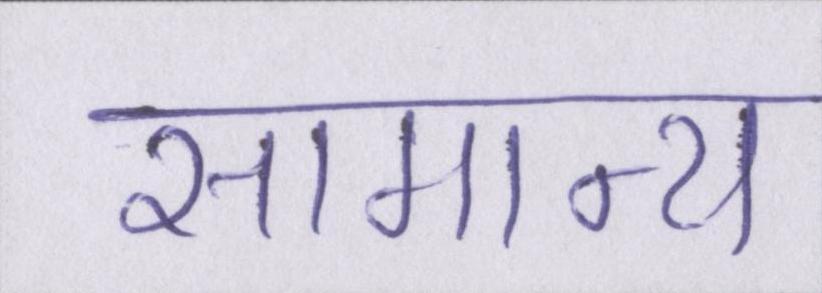 सामान्य